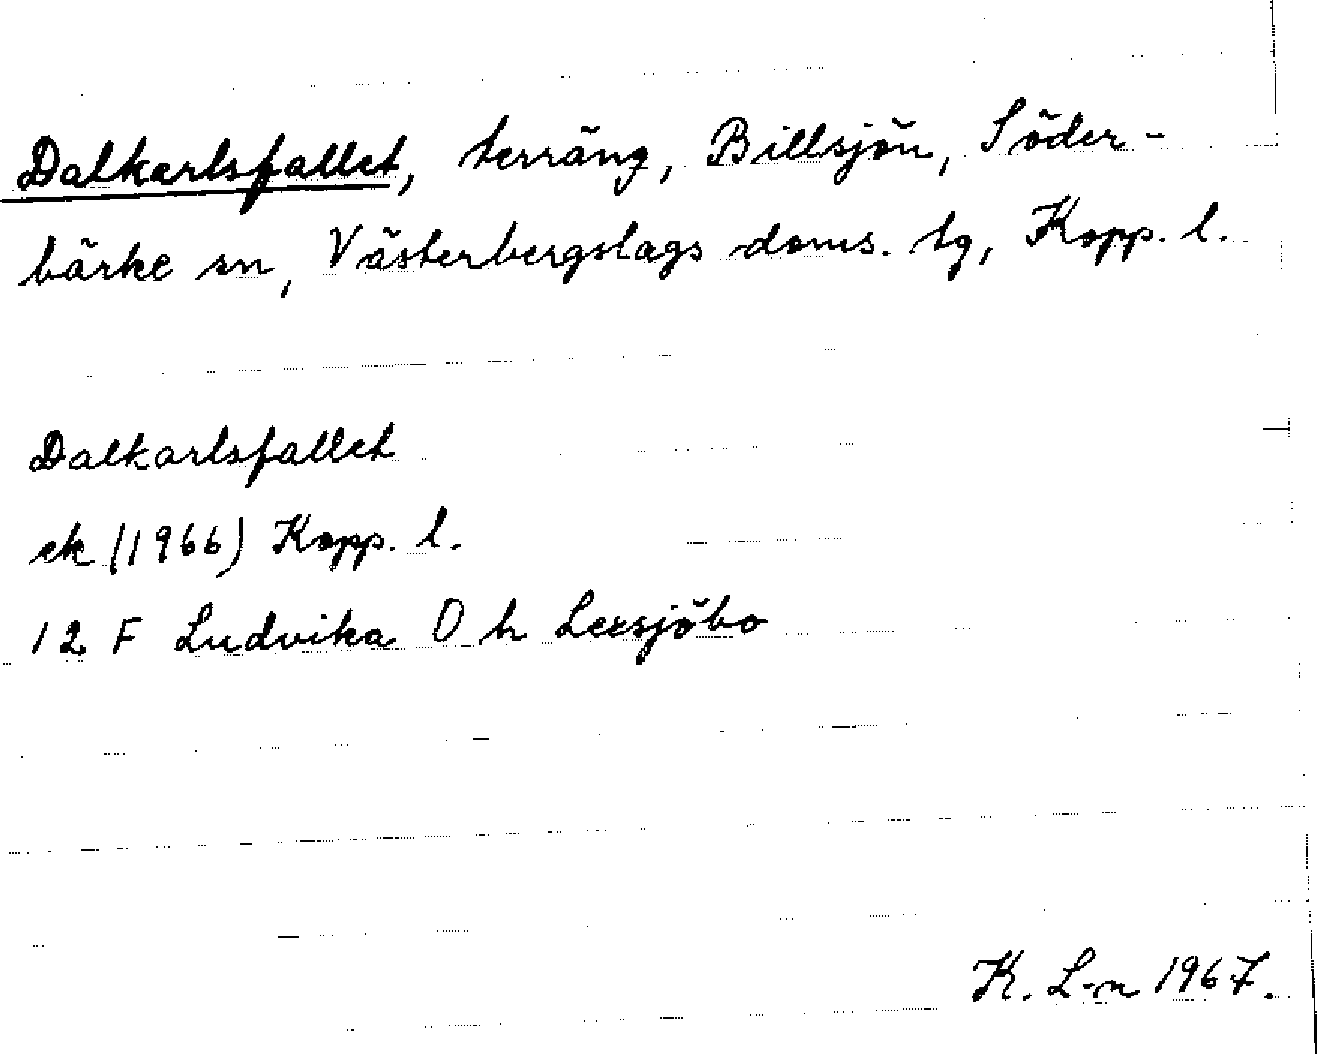 Dalkarlsfallet, terräng, Billsjön, Söder-
bärke sn, Västerbergslags doms. tg, Kopp. l.
Dalkarlsfallet
ek (1966) Kopp. l.
12 F Ludvika 0 h Lexsjöbo
K. L-n 1967.